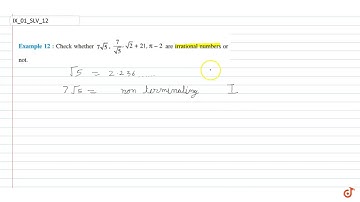 IX_01_SLV_12
Example 12 : Check whether 7√5, 7/√5, √2 + 21, π − 2 are irrational numbers or
not.
√5 = 2.236.....
7√5 = non terminating I